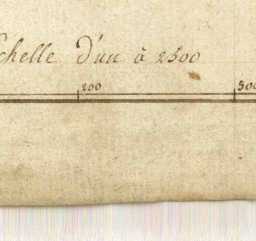 chelle d'un à 2500
200
500